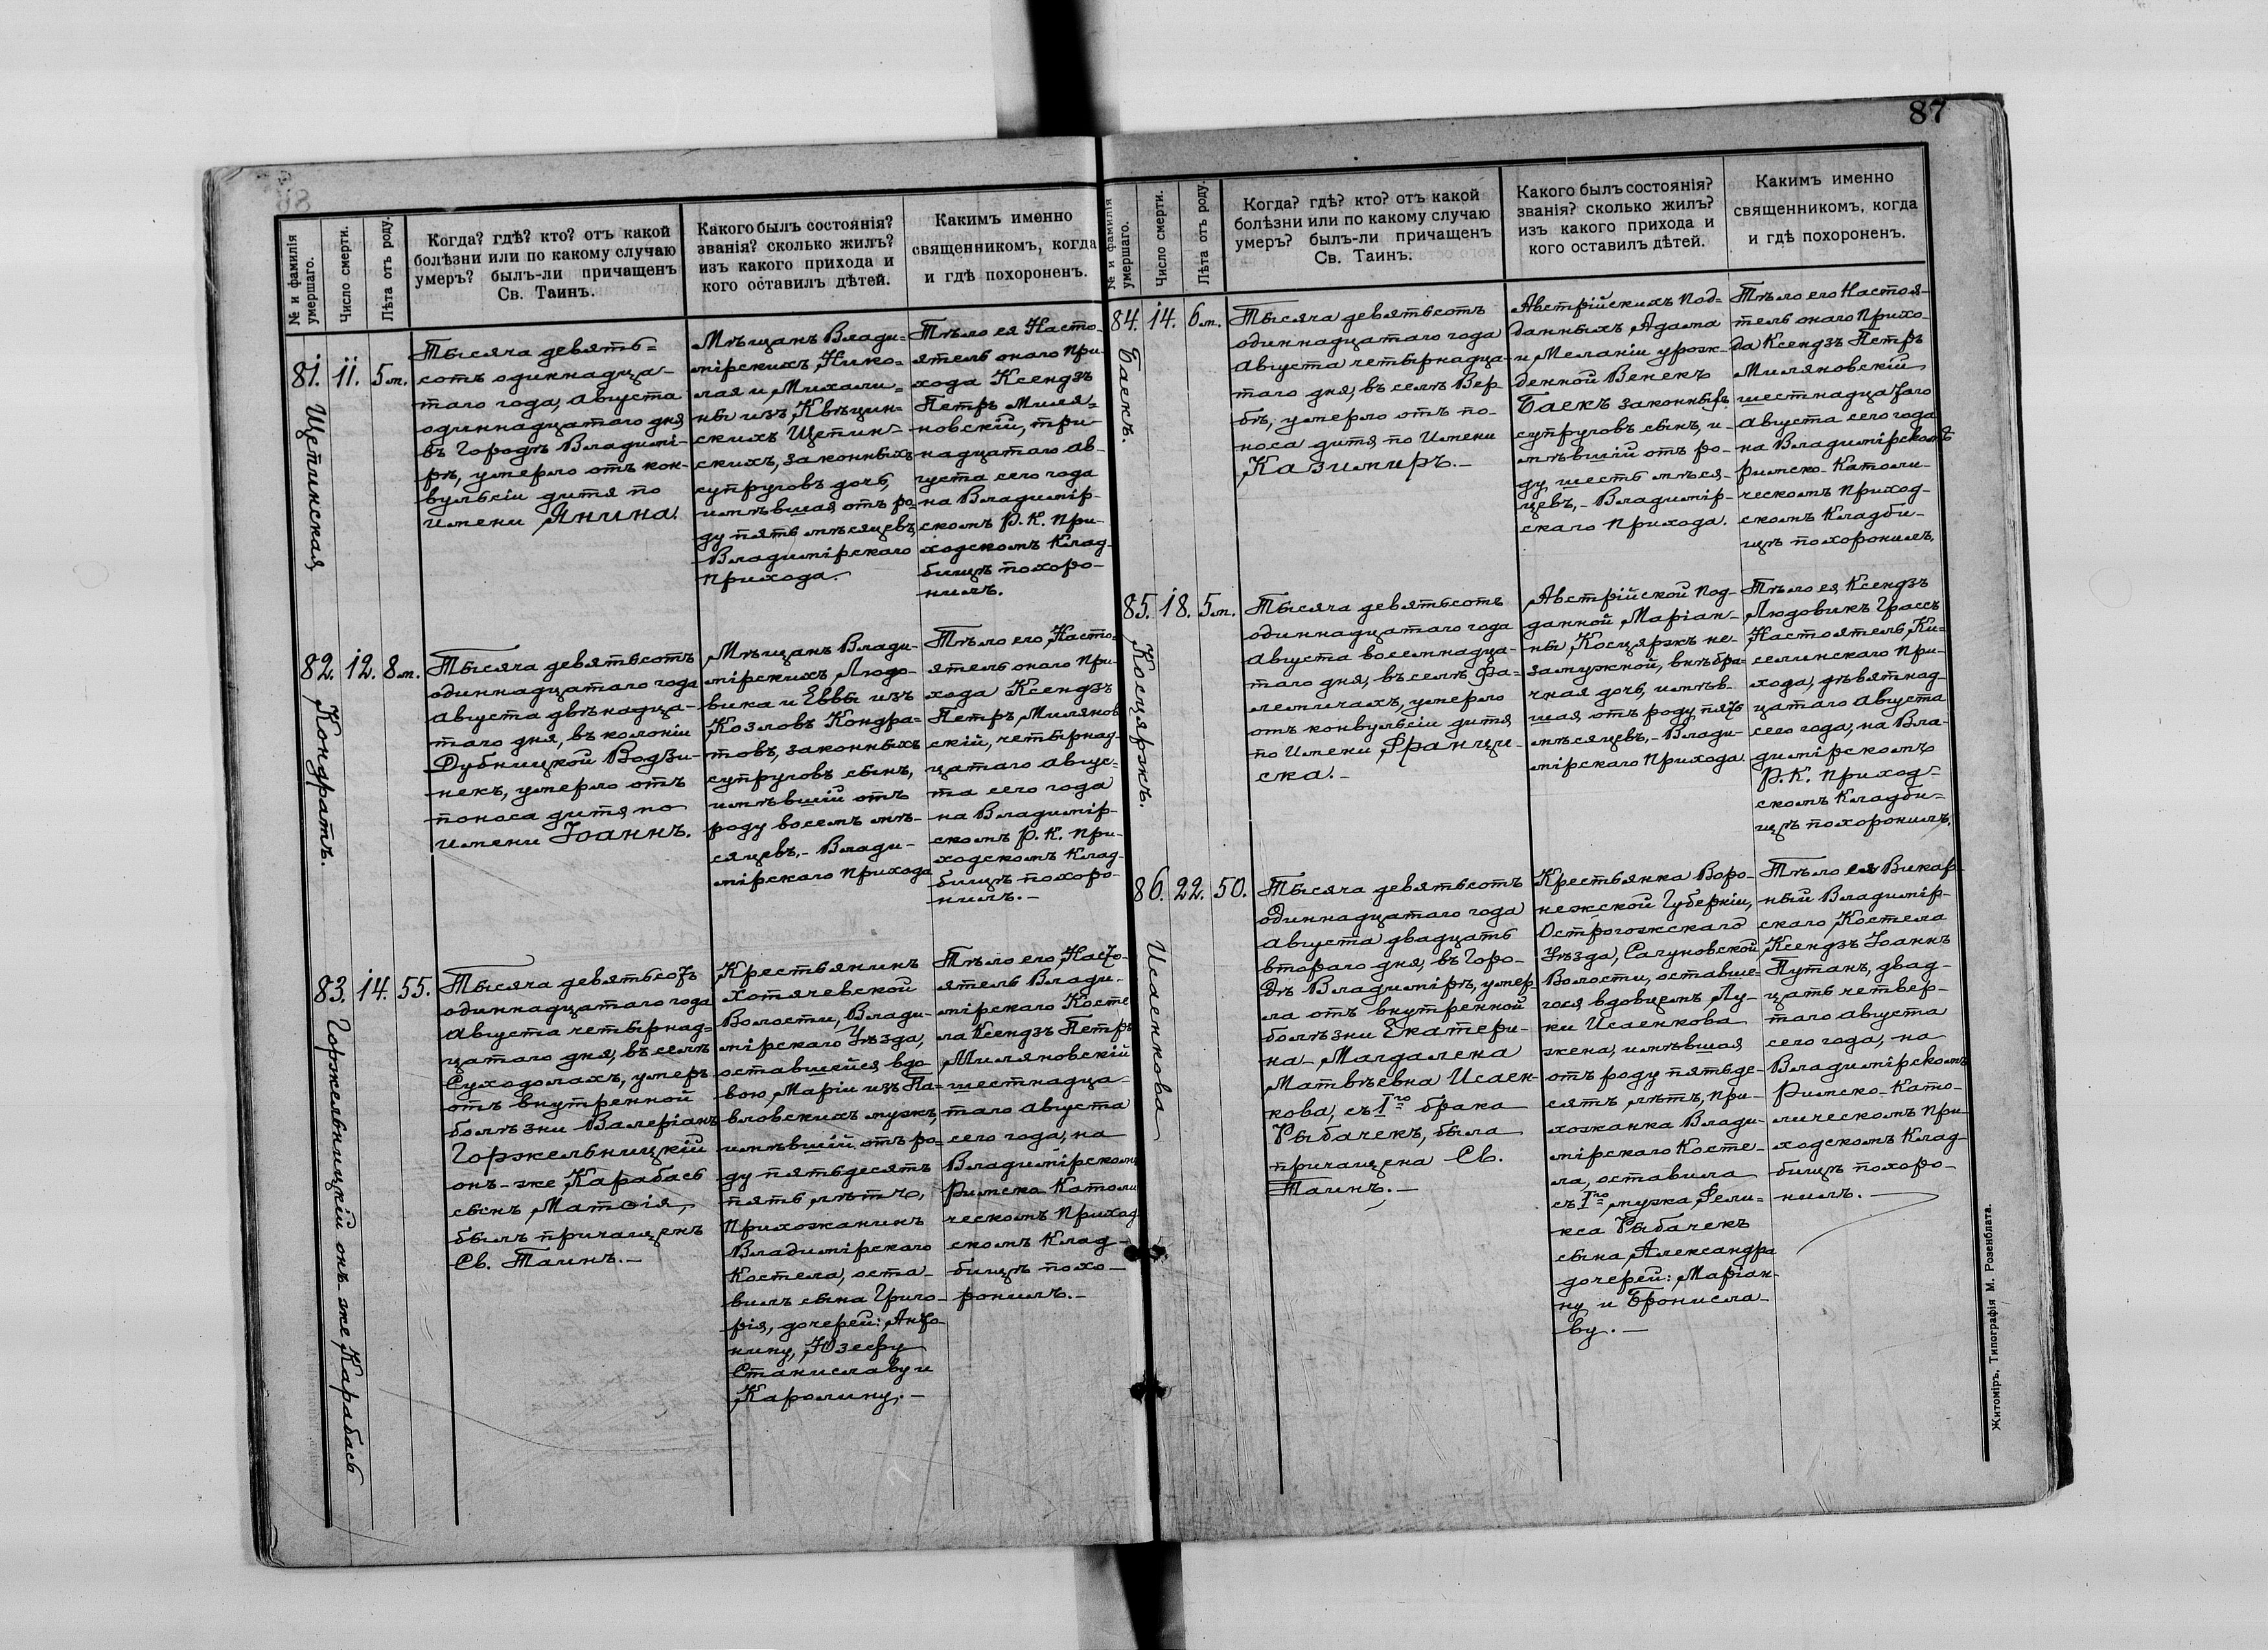 87
№ и фамилія умершаго.
Число смерти.
Лѣта отъ роду.
Когда? гдѣ? кто? отъ какой
болѣзни или по какому случаю
умеръ? былъ-ли причащенъ
Св. Таинъ.
Какого былъ состоянія?
званія? сколько жилъ?
изъ какого прихода и
кого оставилъ дѣтей.
Какимъ именно
священникомъ, когда
и гдѣ похороненъ.
81. 11. 5 м.
Щепинская
Тысяча девять=
сотъ одиннадца-
таго года, Августа
одиннадцатаго дня
въ Городѣ Владимі-
рѣ, умерло отъ кон-
вульсіи дитя по
имени Янина.
Мѣщанъ Влади=
мірскихъ, Нико=
лая и Михали=
ны изъ Квѣцин-
скихъ Щепин-
скихъ, законныхъ
супруговъ дочь,
имѣвшая отъ ро-
ду пять мѣсяцевъ,
Владимірскаго
прихода.
Тѣло ея Насто-
ятель онаго При-
хода Ксендзъ
Петръ Миля=
новскій, три-
надцатаго Ав-
густа сего года
на Владимір-
скомъ Р. К. При-
ходскомъ Клад-
бищѣ похоро-
нилъ.
82. 12. 8 м.
Кондратъ.
Тысяча девятьсотъ
одиннадцатаго года
Августа двѣнадца-
таго дня, въ колоніи
Дубницкой Водзи-
некъ, умерло отъ
поноса дитя по
имени Іоаннъ.
Мѣщанъ Влади-
мірскихъ, Людо-
вика и Еввы изъ
Козловъ Кондра-
товъ, законныхъ
супруговъ сынъ,
имѣвшій отъ
роду восемь мѣ-
сяцевъ,- Влади-
мірскаго прихода
Тѣло его, Насто-
ятель онаго При-
хода Ксендзъ
Петръ Милянов
скій, четырнад-
цатаго Авгус-
та сего года
на Владимір-
скомъ Р. К. При-
ходскомъ Клад-
бищѣ похоро-
нилъ.-
83. 14. 55.
Горжельницкій онъ же Карабась
Тысяча девятьсотъ
одиннадцатаго года
Августа четырнад=
цатаго дня, въ селѣ
Суходолахъ, умеръ
отъ внутренной
болѣзни Валеріанъ
Горжельницкій
онъ-же Карабась
сынъ, Матѳія,
былъ причащенъ
Св. Таинъ.-
Крестьянинъ
Хотячевской
Волости, Влади-
мірскаго Уѣзда,
оставшейся вдо-
вою, Маріи изъ Па-
вловскихъ мужъ,
имѣвшій отъ ро=
ду пятьдесятъ
пять лѣтъ,
Прихожанинъ
Владимірскаго
Костела, оста-
вилъ сына Григо-
рія, дочерей: Анто-
нину, Юзефу
Станиславу и
Каролину.-
Тѣло его, Насто-
ятель Влади-
мірскаго Косте
ла Ксендзъ Петръ
Миляновскій
шестнадца-
таго Августа
сего года, на
Владимірскомъ
Римско Католи
ческомъ Приход-
скомъ Клад-
бищѣ похо-
ронилъ.-
№ и фамилія умершаго.
Число смерти.
Лѣта отъ роду.
Когда? гдѣ? кто? отъ какой
болѣзни или по какому случаю
умеръ? былъ-ли причащенъ
Св. Таинъ.
Какого былъ состоянія?
званія? сколько жилъ?
изъ какого прихода и
кого оставилъ дѣтей.
Какимъ именно
священникомъ, когда
и гдѣ похороненъ.
84. 14. 6 м.
Баекъ.
Тысяча девятьсотъ
одиннадцатаго года
Августа четырнадца-
таго дня, въ селѣ Вер-
бѣ, умерло отъ по-
носа дитя по Имени
Казимиръ.-
Австрійскихъ под=
данныхъ, Адама
и Меланіи урож-
денной Венекъ
Баекъ законныхъ
супруговъ сынъ, и-
мѣвшій отъ ро-
ду шесть мѣся-
цевъ,- Владимір-
скаго Прихода.
Тѣло его Настоя-
тель онаго Прихо-
да Ксендзъ Петръ
Миляновскій
шестнадцатаго
Августа сего года
на Владимірскомъ
Римско-Католи-
ческомъ Приход-
скомъ Кладби-
щѣ похоронилъ.
85. 18. 5 м.
Косцяржъ.
Тысяча девятьсотъ
одиннадцатаго года
Августа восемнадца-
таго дня, въ селѣ Фа-
лемичахъ, умерло
отъ конвульсіи дитя
по Имени Францис-
ска.-
Австрійской Под-
данной Маріан-
ны Косцяржъ не-
замужной, внѣ бра-
чная дочь, имѣв-
шая отъ роду пять
мѣсяцевъ,- Влади-
мірскаго Прихода.
Тѣло ея Ксендзъ
Людовикъ Грассъ
Настоятель, Ки-
селинскаго При-
хода, девятнад-
цатаго Августа
сего года, на Вла-
димірскомъ
Р. К. Приход-
скомъ Кладби-
щѣ похоронилъ.
86. 22. 50.
Исаенкова
Тысяча девятьсотъ
Одиннадцатаго года
Августа двадцать
втораго дня, въ Горо-
дѣ Владимірѣ, умер
ла отъ внутренной
болѣзни Екатери-
на-Магдалена
Матвѣевна Исаен-
кова, съ Iго брака
Рыбачекъ, была
причащена Св.
Таинъ.-
Крестьянка Воро-
нежской Губерніи,
Острогожскаго
Уѣзда, Сагуновской
Волости, оставше-
гося вдовцемъ, Лу-
ки Исаенкова
жена, имѣвшая
отъ роду пятьде-
сятъ лѣтъ, При-
хожанка Влади-
мірскаго Косте-
ла, оставила
съ Iго мужа Фели-
кса Рыбачекъ
сына, Александра
дочерей: Маріан-
ну и Бронисла-
ву.-
Тѣло ея Викар-
ный Владимір-
скаго Костела
Ксендзъ Іоаннъ
Путанъ, двад-
цать четвер-
таго Августа
сего года, на
Владимірскомъ
Римско-Като-
лическомъ При-
ходскомъ Клад-
бищѣ похоро-
нилъ.-
Житоміръ, Типографія М. Розенблата.